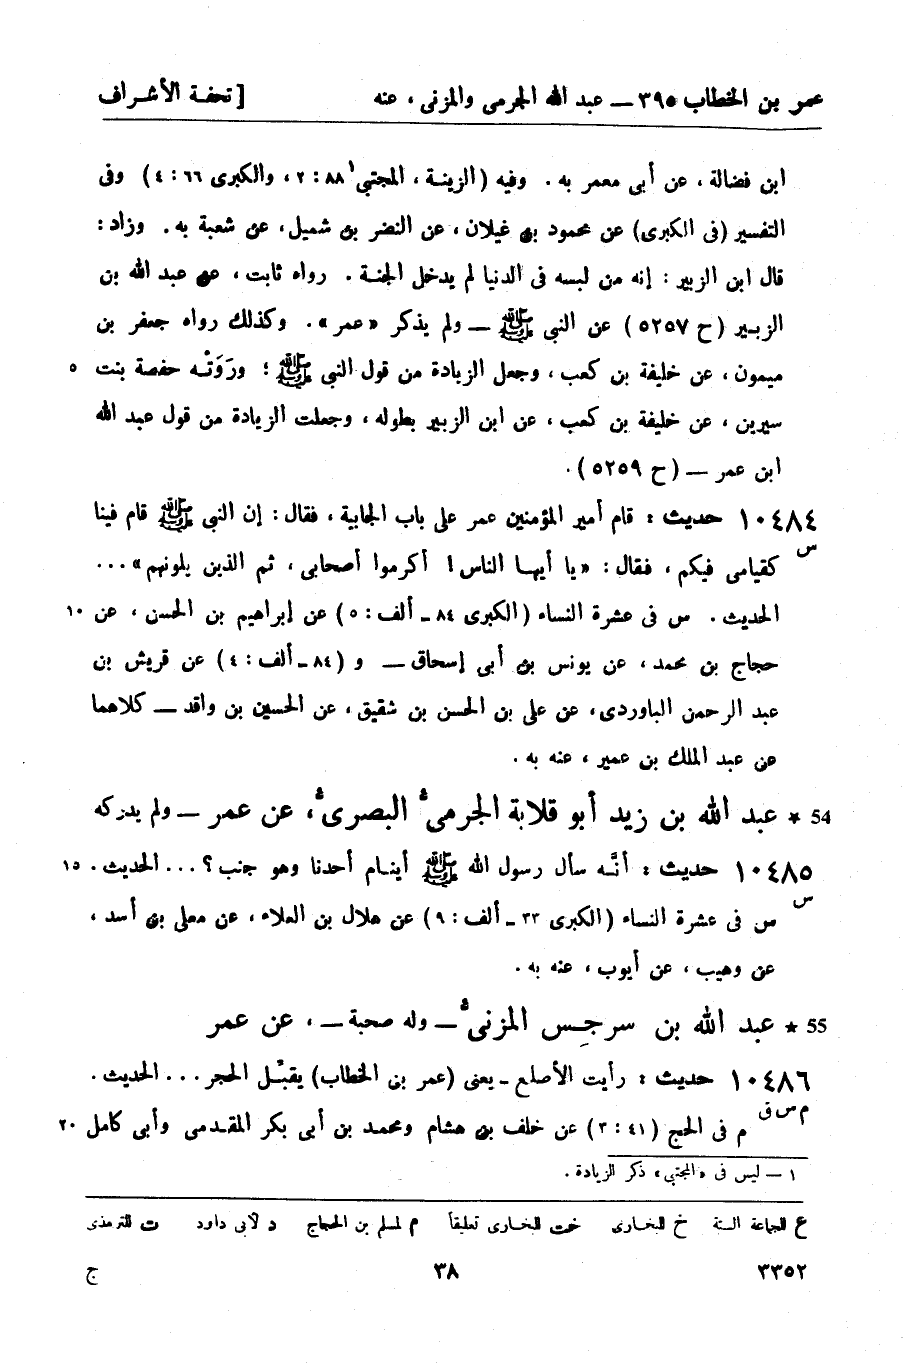 عمر بن الخطاب ٣٩٥ — عبد الله الجرمى والمزنى ، عنه [ تحفة الأشراف
ابن فضالة ، عن أبى معمر به . وفيه (الزينة ، المجتبى١ ٨٨ : ٢ ، والكبرى ٦٦ : ٤) وفى
التفسير (فى الكبرى) عن محمود بن غيلان ، عن النضر بن شميل ، عن شعبة به . وزاد :
قال ابن الزبير : إنه من لبسه فى الدنيا لم يدخل الجنة . رواه ثابت ، عن عبد الله بن
الزبير (ح ٥٢٥٧) عن النبى ﷺ — ولم يذكر «عمر» . وكذلك رواه جعفر بن
ميمون ، عن خليفة بن كعب ، وجعل الزيادة من قول النبى ﷺ ؛ ورَوَتْه حفصة بنت ٥
سيرين ، عن خليفة بن كعب ، عن ابن الزبير بطوله ، وجعلت الزيادة من قول عبد الله
ابن عمر — (ح ٥٢٥٩) .
١٠٤٨٤ حديث : قام أمير المؤمنين عمر على باب الجابية ، فقال : إن النبى ﷺ قام فينا
س كقيامى فيكم ، فقال : «يا أيها الناس! أكرموا أصحابى ، ثم الذين يلونهم» ...
الحديث . س فى عشرة النساء (الكبرى ٨٤ ـ ألف : ٥) عن إبراهيم بن الحسن ، عن ١٠
حجاج بن محمد ، عن يونس بن أبى إسحاق — و (٨٤ ـ ألف : ٤) عن قريش بن
عبد الرحمن الباوردى ، عن على بن الحسن بن شقيق ، عن الحسين بن واقد — كلاهما
عن عبد الملك بن عمير ، عنه به .
54 * عبد الله بن زيد أبو قلابة الجرمىء البصرىء ، عن عمر — ولم يدركه
١٠٤٨٥ حديث : أنَّه سأل رسول الله ﷺ أينام أحدنا وهو جنب ؟ ... الحديث . ١٥
س س فى عشرة النساء (الكبرى ٣٣ ـ ألف : ٩) عن هلال بن العلاء ، عن معلى بن أسد ،
عن وهيب ، عن أيوب ، عنه به .
55 * عبد الله بن سرجِس المزنىء — وله صحبة — ، عن عمر
١٠٤٨٦ حديث : رأيت الأصلع ـ يعنى (عمر بن الخطاب) يقبّل الحجر ... الحديث .
م س ق م فى الحج (٤١ : ٣) عن خلف بن هشام ومحمد بن أبى بكر المقدمى وأبى كامل ٢٠
١ — ليس فى «المجتبى» ذكر الزيادة .
ع للجماعة الستة خ للبخارى خت للبخارى تعليقاً م لمسلم بن الحجاج د لأبى داود ت للترمذى
٣٣٥٢ ٣٨ ج